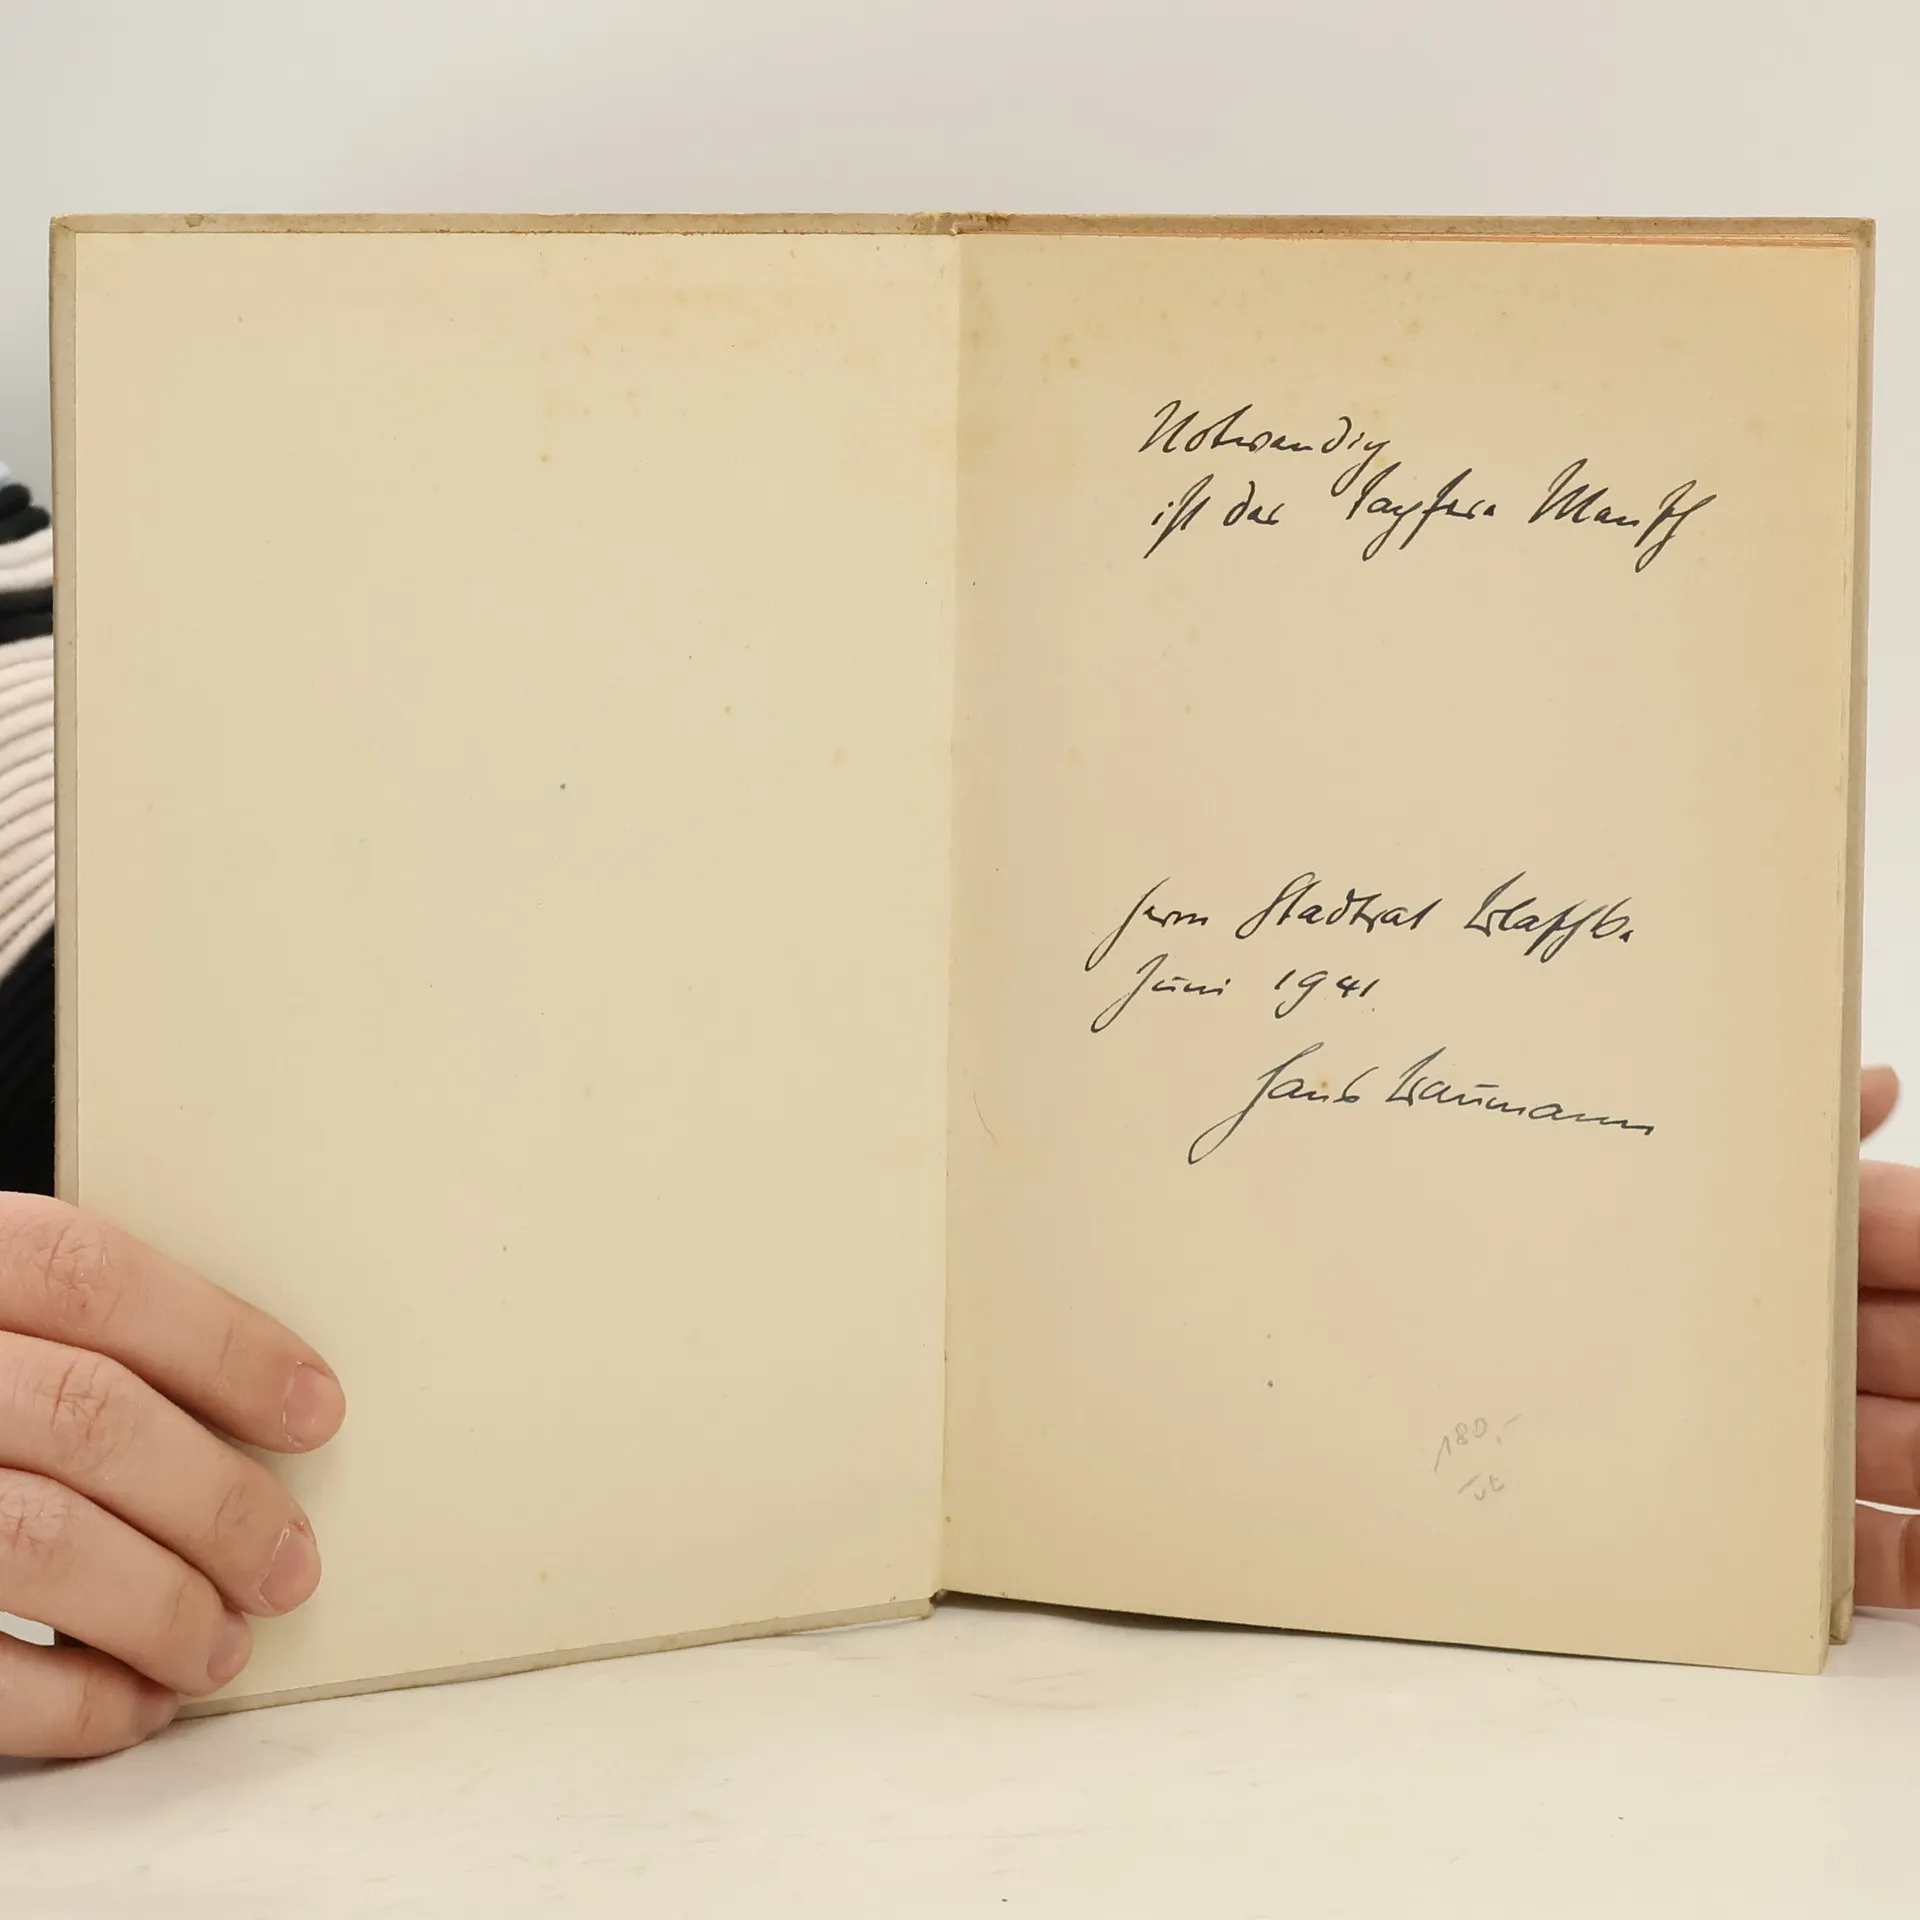 Notwendig
ist der tapfere Mensch
Herrn Stadtrat Blaschke
Juni 1941
Hans Baumann
180,-